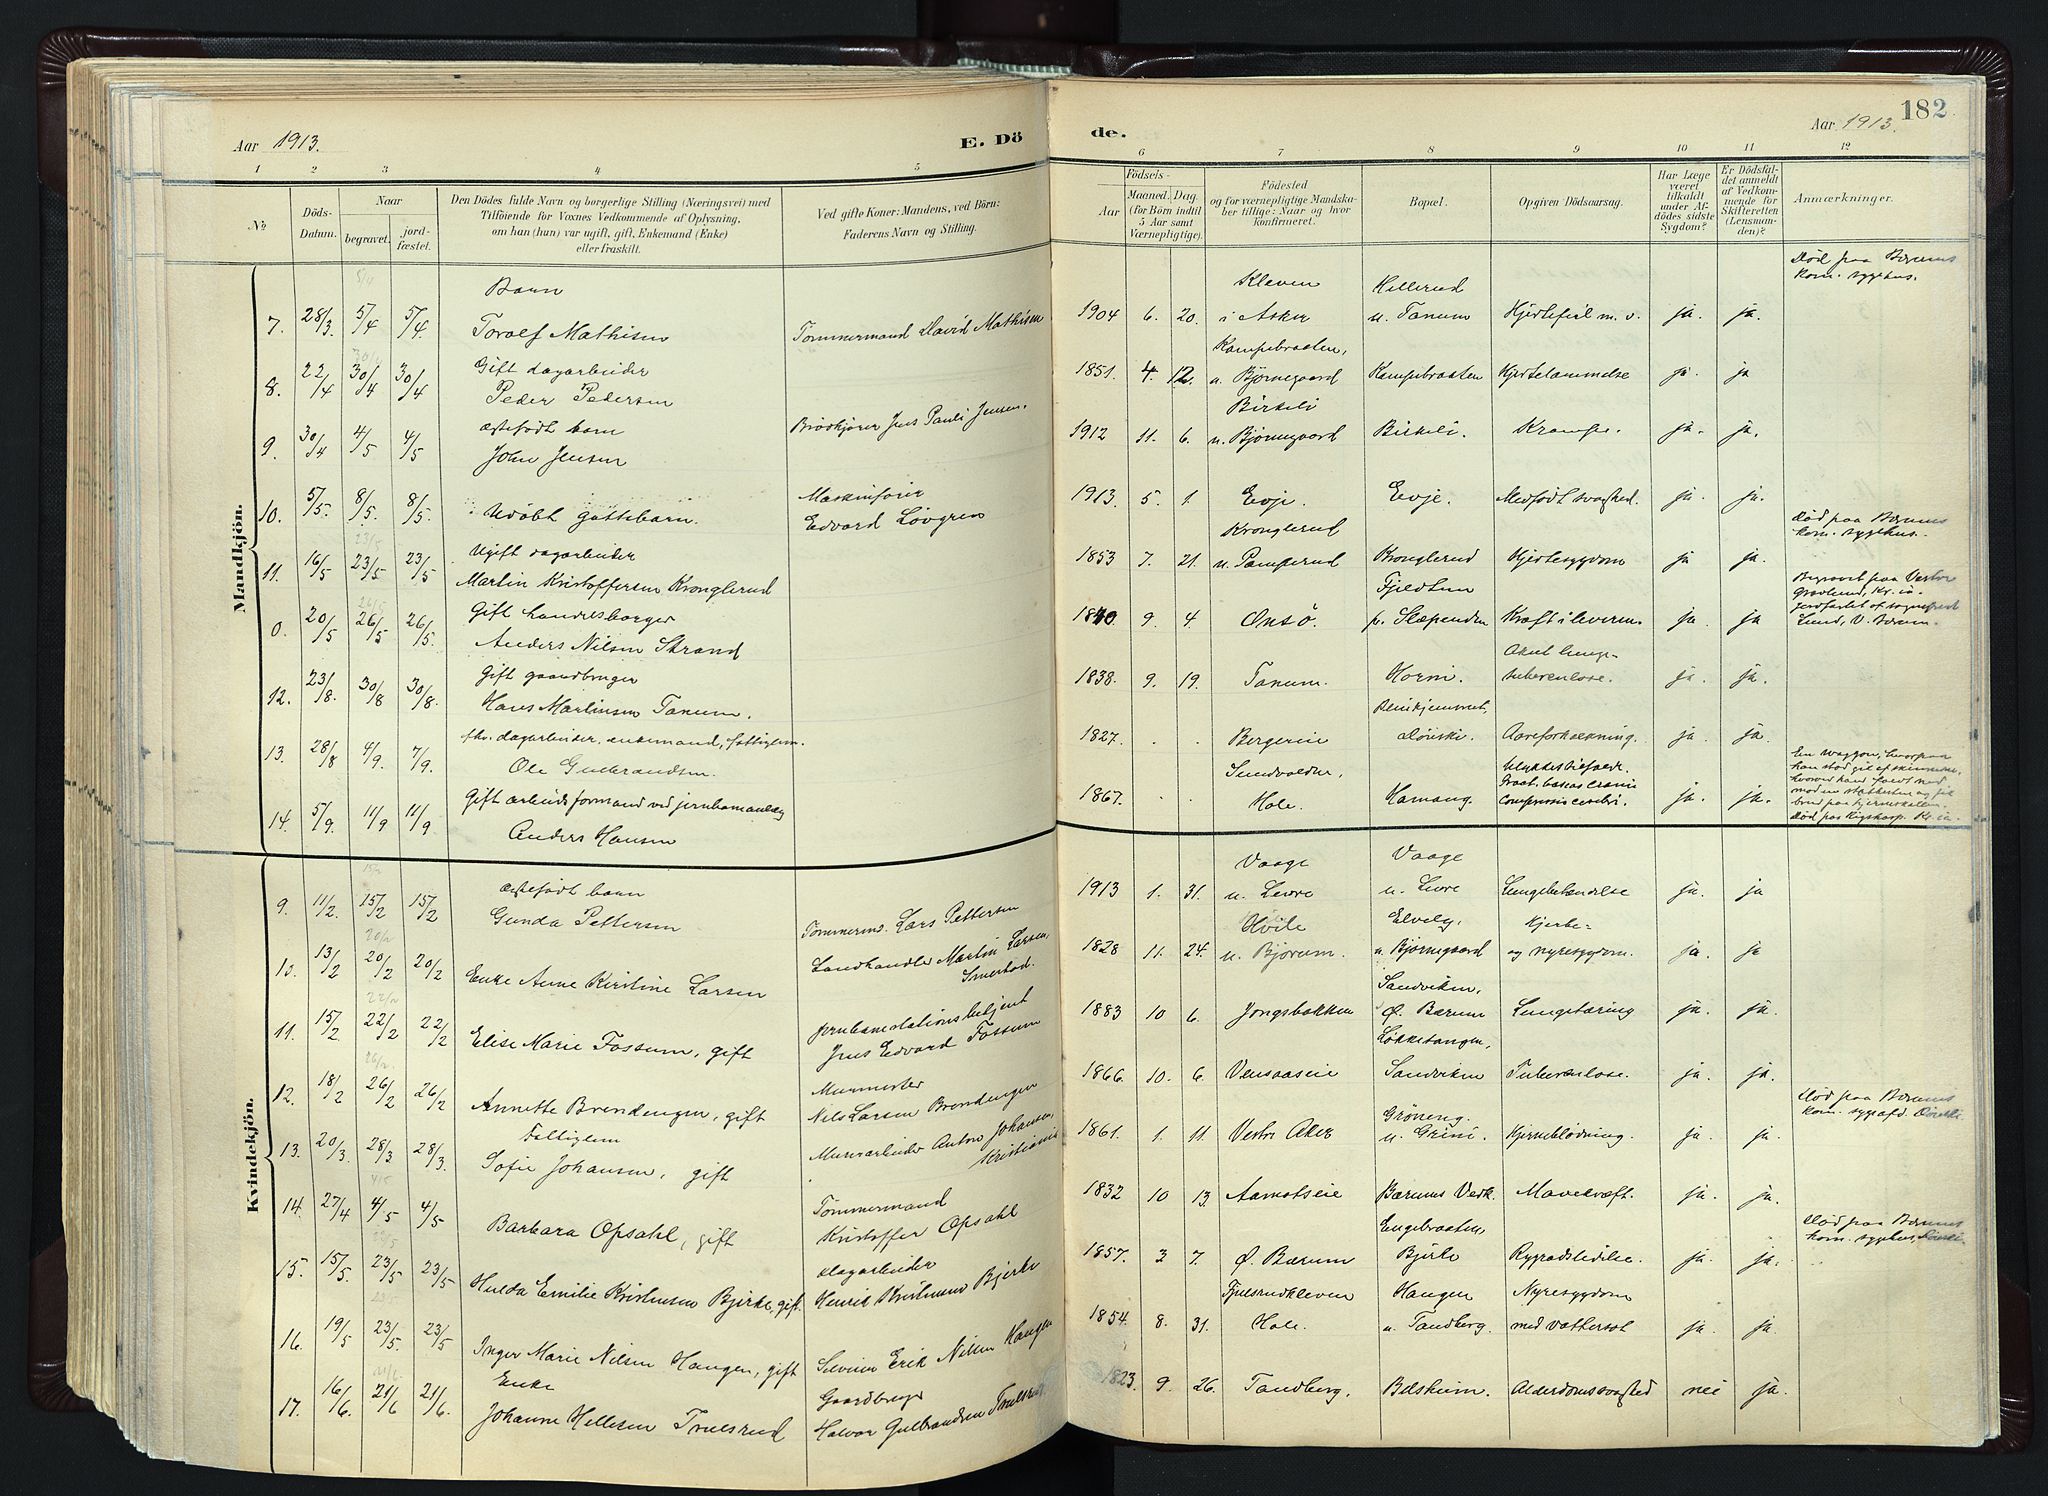 Aar 1913.
E. Dö
de.
Aar 1913.
182
1 2 3 4 5 6 7 8 9 10 11 12
No
Döds-Datum.
Naar
begravet.
jordfæstet.
Den Dödes fulde Navn og borgerlige Stilling (Næringsvei) med
Tilföiende for Voxnes Vedkommende af Oplysning,
om han (hun) var ugift, gift, Enkemand (Enke)
eller fraskilt.
Ved gifte Koner: Mandens, ved Börn:
Faderens Navn og Stilling.
Födsels-
Aar
Maaned. Dag.
(for Börn indtil
5 Aar samt
Værnepligtige).
Födested
og for værnepligtige Mandskaber
tillige: Naar og hvor
konfirmeret.
Bopæl.
Opgiven Dödsaarsag.
Har Læge
været
tilkaldt
under Afdödes
sidste
Sygdom?
Er Dödsfaldet
anmeldt
af Vedkommende
for
Skifteretten
(Lensmanden)?
Anmærkninger.
Mandkjön.
7. 28/3 5/4 5/4 Barn Toralf Mathisen Tømmermand David Mathisen 1904 6. 20. Kleven i Asker Hellerud u. Tanum Hjertefeil m. v. ja. ja. Død paa Bærums kom. sygehus.
8. 22/4 30/4 30/4 Gift dagarbeider Peder Pedersen 1851. 4. 12. Kampebraaten, u. Bjørnegaard Kampebraaten Hjertelammelse ja. ja
9. 30/4 4/5 4/5 ægtefødt barn John Jensen Brødkjører Jens Pauli Jensen. 1912 11. 6. Birkeli u. Bjørnegaard Birkeli. Krampe. ja. ja.
10. 5/5. 8/5. 8/5. Udøbt guttebarn. Maskinfører Edvard Løvgren 1913. 5. 1. Evje. Evje. Medfødt svaghed. ja. ja.
11. 16/5 23/5 23/5 Ugift dagarbeider Martin Kristoffersen Kronglerud 1853 7. 21. Kronglerud u. Pamperud Kronglerud Hjertesygdom ja ja. Død paa Bærums kom. sygehus.
0. 20/5 26/5 26/5. Gift handelsborger Anders Nilsen Strand 1840 9. 4 Onsö. Fjeldtun p. Slæpenden Kræft i leveren ja. ja Begravet paa Vestre Gravlund, Kr.ia. Jordfæstet af sogneprest Lund, V. Bærum.
12. 23/8. 30/8 30/8. Gift gaardbruger Hans Martinsen Tanum. 1838. 9. 19. Tanum. Horni. Akut lungetuberculose. ja. ja.
13. 28/8 4/9. 7/9. fhv. dagarbeider, enkemand, fattiglem. Ole Gulbrandsen. 1827. . . Bergereie Pleiehjemmet, Dønski. Aareforkalkning. ja. ja.
14. 5/9. 11/9 11/9 Gift arbeidsformand ved jernbaneanlæg Anders Hansen 1867. . . Sundvolden, Hole. Hamang. Ulykkestilfælde. Fract. baseos cranii Compressio cerebri. ja. ja. En waggon, hvorpaa han stod gik af skinnerne, hvorved hand faldt ned mod en stakkesten og fik brud paa hjerneskallen. Død paa Rigshosp. Kr.ia.
Kvindekjön.
9. 11/2. 15/2 15/2 ægtefødt barn Gunda Pettersen Tømmermd. Lars Pettersen 1913 1. 31. Vaage u. Levre Vaage u. Levre Lungebetændelse ja. ja
10. 13/2 20/2 20/2 Enke Anne Kirstine Larsen Landhandler Martin Larsen, Smestad. 1828 11. 24. Hvile u. Bjørum. Elvely, u. Bjørnegaard Hjerte- og nyresygdom. ja. ja
11. 15/2. 22/2 22/2 Elise Marie Fossum, gift Jernbanestationsbetjent Jens Edvard Fossum 1883 10 6. Jongsbakken Sandviken, Ø. Bærum Lungetæring ja. ja.
12. 18/2 26/2 26/2 Annette Brendengen, gift Murmester Nils Larsen Brendengen 1866. 10. 6. Vensaaseie Løkketangen, Sandviken Tuberculose. ja. ja.
13. 20/3. 28/3 28/3. Fattiglem Sofie Johansen, gift Murarbeider Anton Johansen, Kristiania 1861. 1. 11. Vestre Aker Grøneng. u. Grini. Hjerneblødning. ja. ja. Død paa Bærums kom. sygeafd. Dønski.
14. 27/4 4/5 4/5 Barbara Opsahl, gift Tømmermand Kristoffer Opsahl 1832 10 13. Aamotseie Bærums Verk. Mavekræft. ja. ja.
15. 15/5. 23/5 23/5 Hulda Emilie Kristensen Bjerke, gift. Dagarbeider Henrik Kristensen Bjerke 1857. 3 7. Ø. Bærum Engebraaten, Bjerke Rygradslidelse. ja. ja. Død paa Bærums kom. sygehus, Dønski.
16. 19/5 23/5. 23/5 Inger Marie Nilsen Haugen, gift Selveier Erik Nilsen Haugen 1854. 8. 31. Fjulsrudkleven Hole. Haugen u. Tandberg. Nyresygdom med vattersot ja. ja.
17. 16/6. 21/6 21/6. Enke Johanne Hellesen Trulsrud Gaardbruger Halvor Gulbrandsen Trulsrud 1823. 9. 26. Tandberg. Belshum. Alderdomssvaghed nei ja.